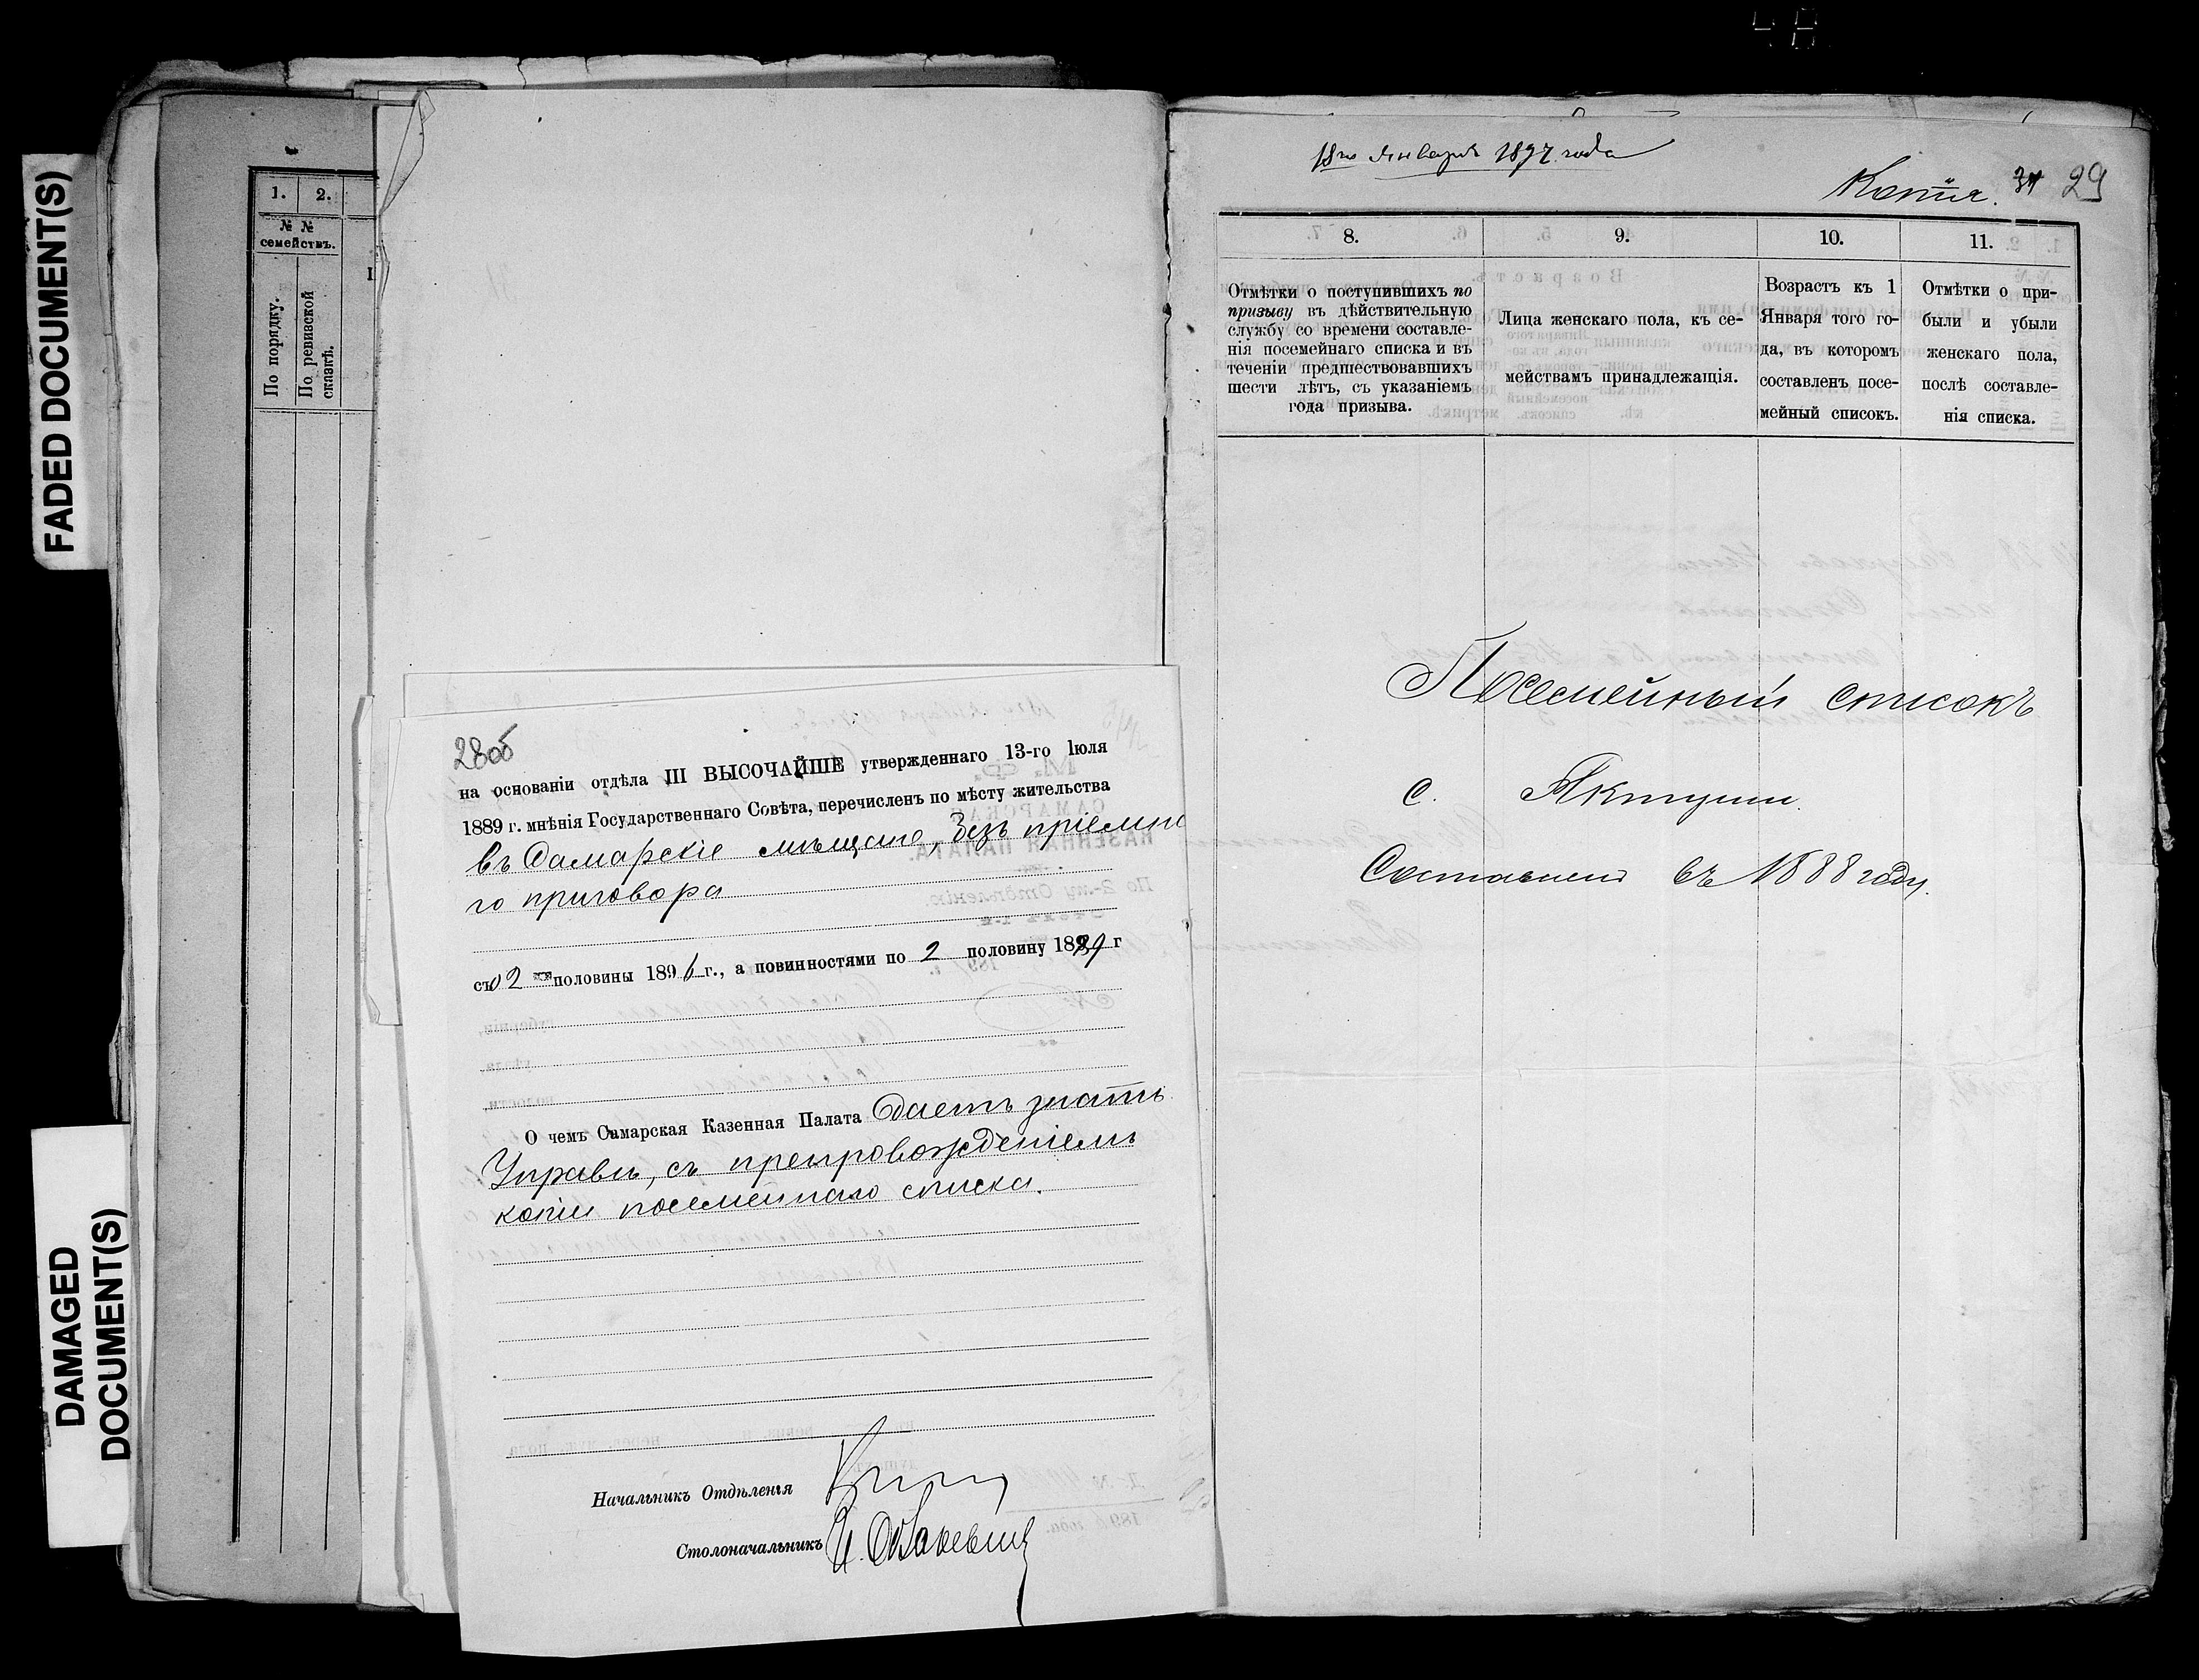 FADED DOCUMENT(S)
DAMAGED
DOCUMENT(S)
1. 2.
№ №
семействъ.
По порядку.
По ревизской
сказкѣ.
28об
на основаніи отдѣла III ВЫСОЧАЙШЕ утвержденнаго 13-го Іюля
1889 г. мнѣнія Государственнаго Совѣта, перечисленъ по мѣсту жительства
въ Самарскіе мѣщане, безъ пріемна
го приговора
со 2 половины 1896 г., а повинностями по 2 половину 1899 г
О чемъ Самарская Казенная Палата даетъ знать
Управѣ, съ препровожденіемъ
копіи посемейнаго списка.
Начальникъ Отдѣленія
Столоначальникъ
18го Января 1897 года
Копія. 31 29
8. 9. 10. 11.
Отмѣтки о поступившихъ по
призыву въ дѣйствительную
службу со времени составле-
нія посемейнаго списка и въ
теченіи предшествовавшихъ
шести лѣтъ, съ указаніемъ
года призыва.
Лица женскаго пола, къ се-
мействамъ принадлежащія.
Возрастъ къ 1
Января того го-
да, въ которомъ
составленъ посе-
мейный списокъ.
Отмѣтки о при-
были и убыли
женскаго пола,
послѣ составле-
нія списка.
Посемейный списокъ
с. Актуши.
Составленъ въ 1888 году.